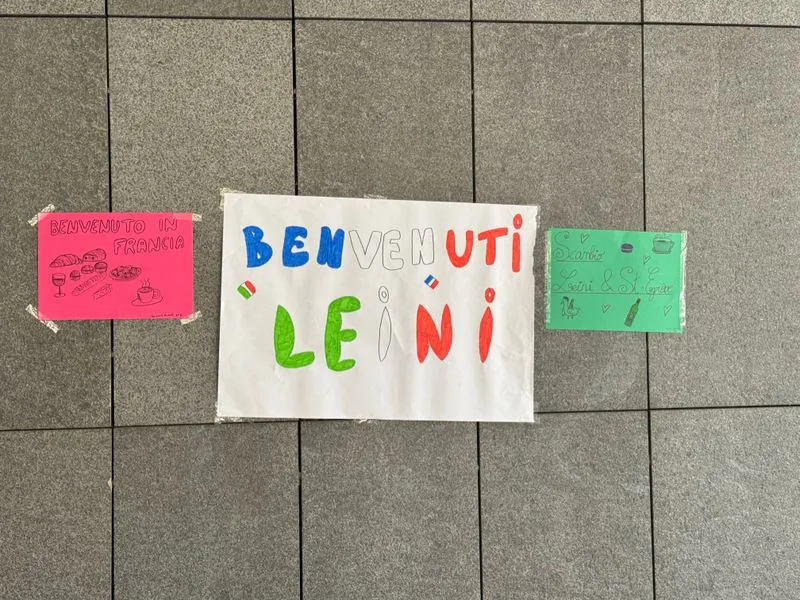 BENVENUTO IN
FRANCIA
BENVENUTI
LEINI
Scambio
Leini & St-Egrève